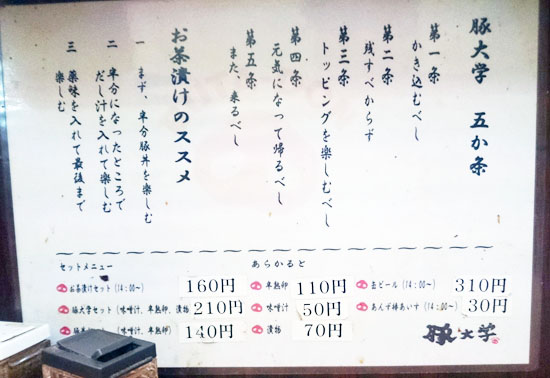 豚大学 五か条
第一条
かき込むべし
第二条
残すべからず
第三条
トッピングを楽しむべし
第四条
元気になって帰るべし
第五条
また、来るべし
お茶漬けのススメ
一 まず、半分豚丼を楽しむ
二 半分になったところで
だし汁を入れて楽しむ
三 薬味を入れて最後まで
楽しむ
セットメニュー
お茶漬けセット(14:00〜) 160円
豚大学セット(味噌汁、半熟卵、漬物) 210円
(味噌汁、半熟卵) 140円
あらかると
半熟卵 110円
味噌汁 50円
漬物 70円
缶ビール(14:00〜) 310円
あんず棒あいす(14:00〜) 30円
豚大学